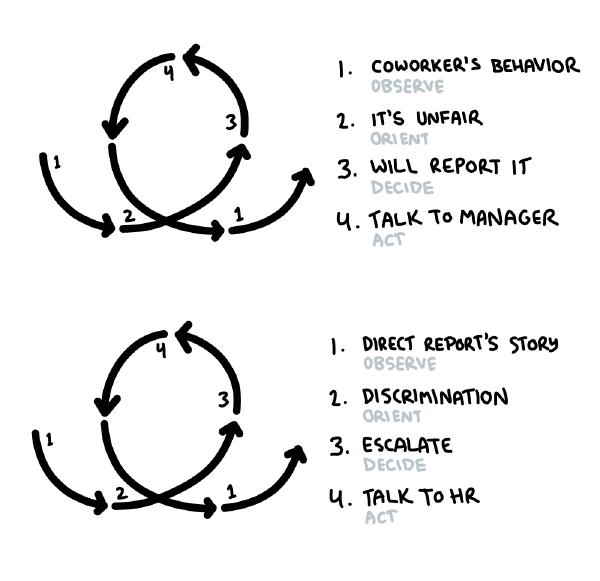 1. COWORKER'S BEHAVIOR
OBSERVE
2. IT'S UNFAIR
ORIENT
3. WILL REPORT IT
DECIDE
4. TALK TO MANAGER
ACT
4
3
1
2
1
1. DIRECT REPORT'S STORY
OBSERVE
2. DISCRIMINATION
ORIENT
3. ESCALATE
DECIDE
4. TALK TO HR
ACT
4
3
1
2
1